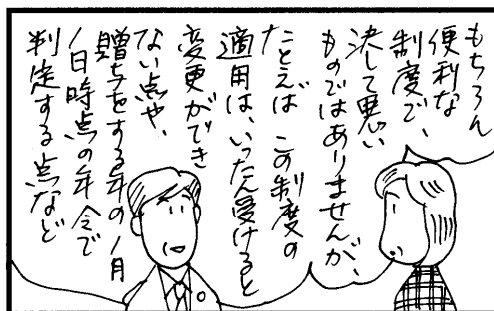 もちろん
便利な
制度で、
決して悪い
ものではありませんが、
たとえば この制度の
適用は、いったん受けると
変更ができ
ない点や、
贈与をする年の1月
1日時点の年令で
判定する点など